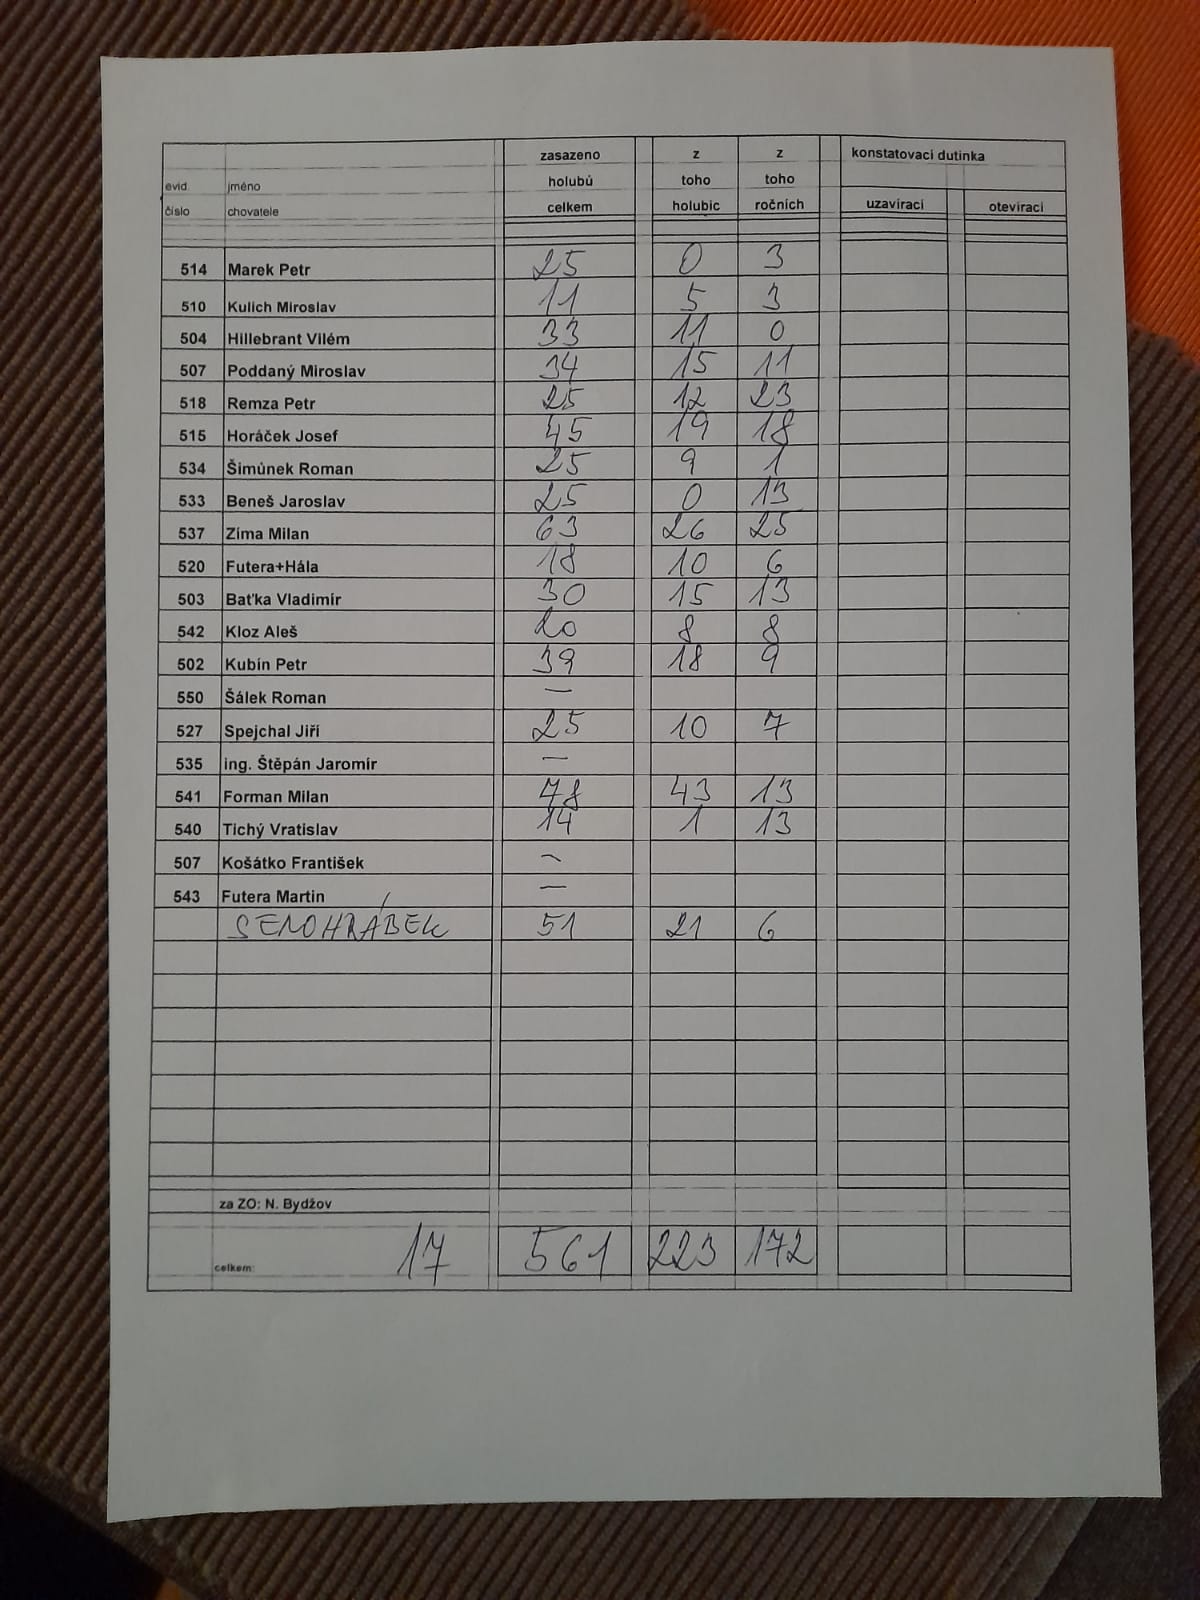 zasazeno z z konstatovací dutinka
evid. jméno holubů toho toho
číslo chovatele celkem holubic ročních uzavírací otevírací
514 Marek Petr 25 0 3
510 Kulich Miroslav 11 5 3
504 Hillebrant Vilém 33 11 0
507 Poddaný Miroslav 34 15 11
518 Remza Petr 25 12 23
515 Horáček Josef 45 19 18
534 Šimůnek Roman 25 9 1
533 Beneš Jaroslav 25 0 13
537 Zíma Milan 63 26 25
520 Futera+Hála 18 10 6
503 Baťka Vladimír 30 15 13
542 Kloz Aleš 20 8 8
502 Kubín Petr 39 18 9
550 Šálek Roman —
527 Spejchal Jiří 25 10 7
535 ing. Štěpán Jaromír —
541 Forman Milan 78 43 13
540 Tichý Vratislav 14 1 13
507 Košátko František —
543 Futera Martin —
SENOHRÁBEK 51 21 6
za ZO: N. Bydžov
celkem: 17 561 223 172